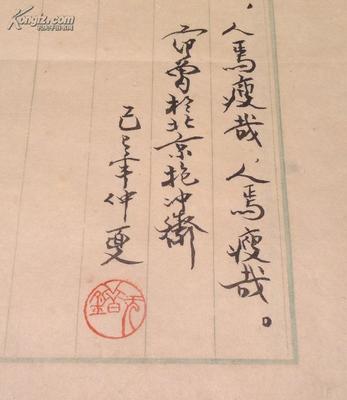 Kongfz.com
，人焉瘦哉，人焉瘦哉。
於北京抱冲齋
己巳年仲夏